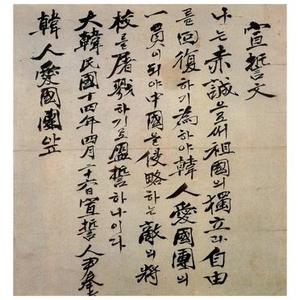 宣誓文
나는 赤誠으로써 祖國의 獨立과 自由
를 回復하기 爲하야 韓人愛國團의
一員이 되야 中國을 侵略하는 敵의 將
校를 屠戮하기로 盟誓하나이다
大韓民國十四年四月二十六日 宣誓人 尹奉吉
韓人愛國團앞